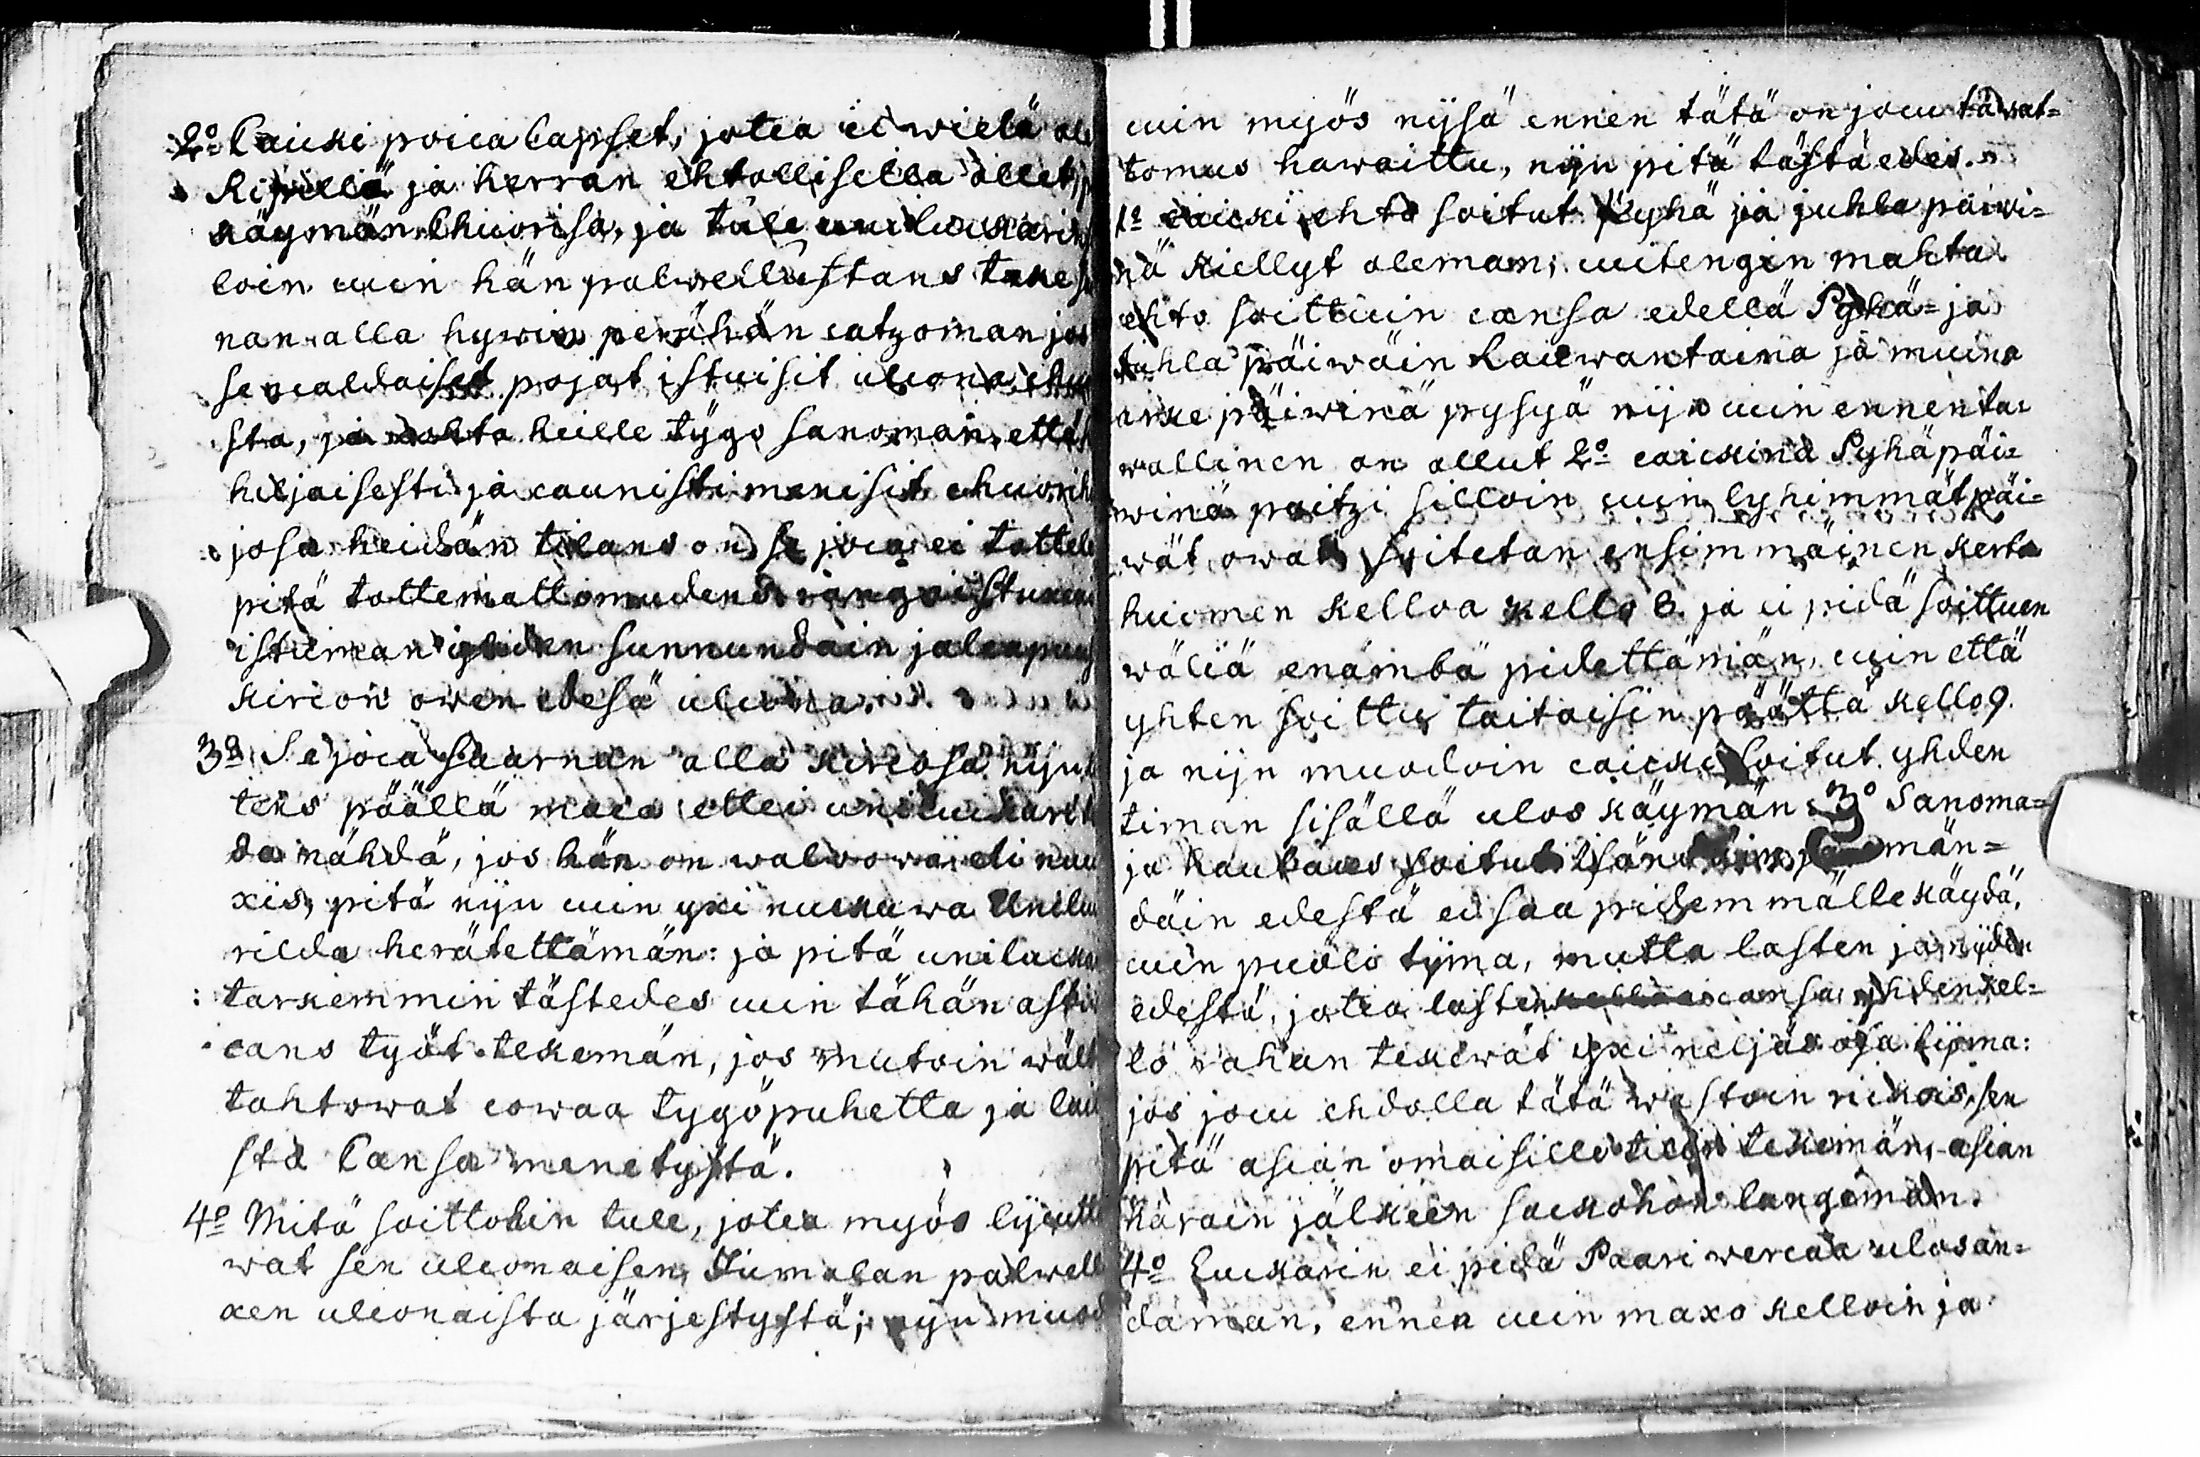 2o Caicki poica lapset, jotca ei wielä ole
Ripillä ja herran ehtollisella ollet, p
käymän Chuorisa, ja tule uniluckarin
loin cuin hän palwellustans teke
nan alla hywin perähän catzoman jos
sencaldaiset pojat istuisit ulcona chuo
sta, ja heille tygö sanoman, että
hiljaisesti ja caunisti menisit chuorih
josa heidän tilans on, se joca ei tottele
pitä tottelemattomudens rangaistuxexi
istuman yhden sunnundain jalcapuus
kircon owen edesä ulcona.
3o Se joca Saarnan alla kircosa nijn
tens päällä maca ettei uniluckarit
da nähdä, jos hän on walwowa eli nuc
xis, pitä nijn cuin yxi nuckuwa Uniluc
rilda herätettämän: ja pitä unilucka
tarkemmin tästedes cuin tähän asti
cans työt tekemän, jos mutoin wält
tahtowat cowaa tygöpuhetta ja lai
sta Cansa menetystä.
4o Mitä soittohin tule, jotca myös lijcutt
wat sen ulconaisen Jumalan palwell
xen ulconaista järjestystä; nijn muod
cuin myös nijsä ennen tätä on jocu täwat=
tomus hawaittu, nijn pitä tästä edes.
1o caicki ehto soitut Pyhä ja juhla päiwi=
nä kiellyt oleman; cuitengin mahta
ehto soittuin cansa edellä Pyhä= ja
Juhla päiwäin Lauwantaina ja muina
arke päiwinä pysyä nijn cuin ennen ta=
wallinen on ollut 2o caickina Pyhäpäi=
winä paitzi silloin cuin lyhimmät päi=
wät owat soitetan ensimmäinen kerta
huomen kelloa kello 8. ja ei pidä soittuen
wäliä enämbä pidettämän, cuin että
yhten soittu taitaisin päättä kello 9.
ja nijn muodoin caicki soitut yhden
timan sisällä ulos käymän. 3o Sanoma=
ja hautaus soitut isändäin ja emän=
däin edestä ei saa pidemmälle käydä,
cuin puoli tijma, mutta lasten ja nijden
edestä, jotca lasten cansa yhden kel=
lo rahan tekewät yxi neljäs osa tijma:
jos jocu ehdolla tätä wastoin rickois, sen
pitä asian omaisille tilin tekemän, asian
haarain jälkeen sackohon langeman.
4o Luckarin ei pidä Paari wercaa ulosan=
daman, ennen cuin maxo kelloin ja